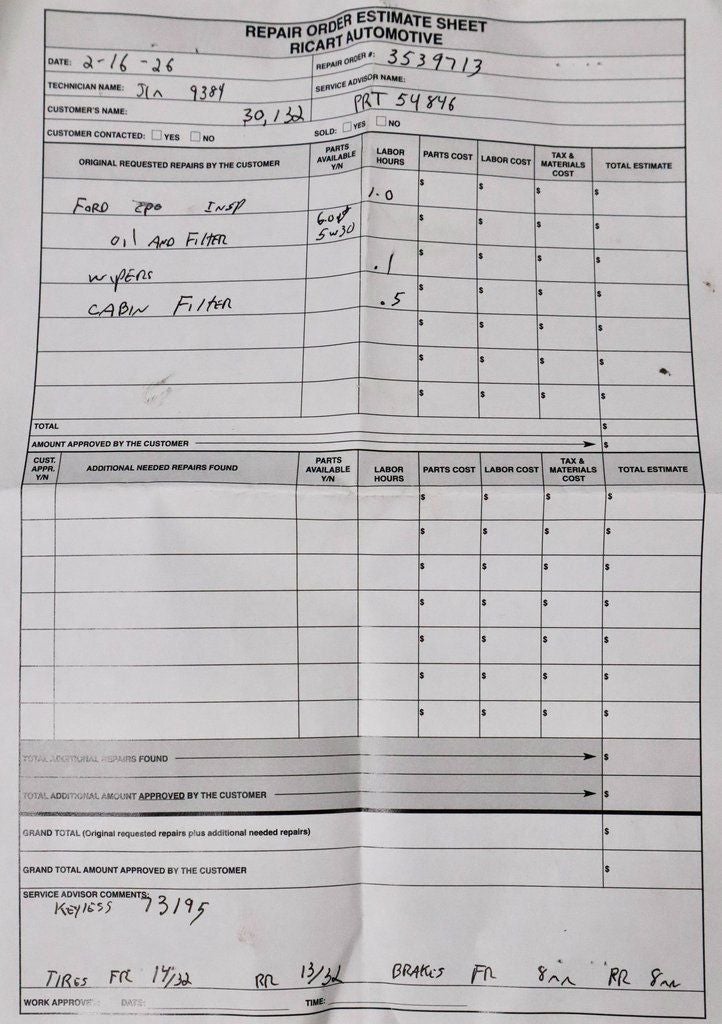 REPAIR ORDER ESTIMATE SHEET
RICART AUTOMOTIVE
DATE: 2-16-26 REPAIR ORDER #: 3539713
TECHNICIAN NAME: 9384 SERVICE ADVISOR NAME:
CUSTOMER'S NAME: 30,132 PRT 54846
CUSTOMER CONTACTED: YES NO SOLD: YES NO
ORIGINAL REQUESTED REPAIRS BY THE CUSTOMER PARTS AVAILABLE Y/N LABOR HOURS PARTS COST LABOR COST TAX & MATERIALS COST TOTAL ESTIMATE
FORD INSP 1.0 $ $ $ $
OIL AND FILTER 5W30 $ $ $ $
WIPERS .1 $ $ $ $
CABIN FILTER .5 $ $ $ $
$ $ $ $
$ $ $ $
$ $ $ $
TOTAL $
AMOUNT APPROVED BY THE CUSTOMER $
CUST. APPR. Y/N ADDITIONAL NEEDED REPAIRS FOUND PARTS AVAILABLE Y/N LABOR HOURS PARTS COST LABOR COST TAX & MATERIALS COST TOTAL ESTIMATE
$ $ $ $
$ $ $ $
$ $ $ $
$ $ $ $
$ $ $ $
$ $ $ $
$ $ $ $
TOTAL ADDITIONAL REPAIRS FOUND $
TOTAL ADDITIONAL AMOUNT APPROVED BY THE CUSTOMER $
GRAND TOTAL (Original requested repairs plus additional needed repairs) $
GRAND TOTAL AMOUNT APPROVED BY THE CUSTOMER $
SERVICE ADVISOR COMMENTS:
KEYLESS 73195
TIRES FR 14/32 RR 13/32 BRAKES FR 8mm RR 8mm
WORK APPROVED: DATE: TIME: